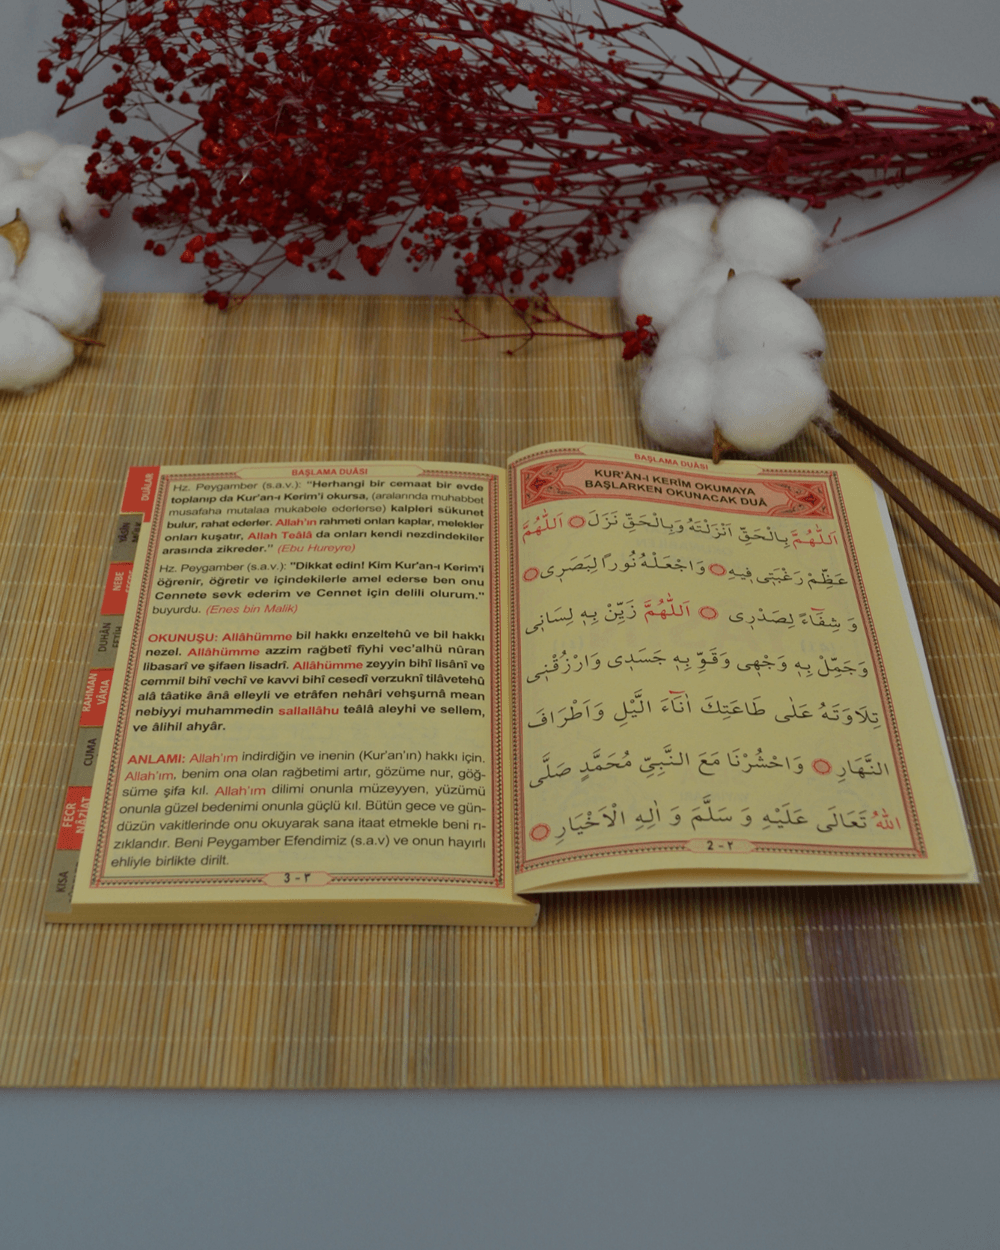 BAŞLAMA DUÂSI
KUR'ÂN-I KERİM OKUMAYA
BAŞLARKEN OKUNACAK DUÂ
اَللّٰهُمَّ بِالْحَقِّ اَنْزَلْتَهُ وَبِالْحَقِّ نَزَلَ اَللّٰهُمَّ
عَظِّمْ رَغْبَتٖى فٖيهِ وَاجْعَلْهُ نُوراً لِبَصَرٖى
وَ شِفَٓاءً لِصَدْرٖى اَللّٰهُمَّ زَيِّنْ بِهٖ لِسَانٖى
وَجَمِّلْ بِهٖ وَجْهٖى وَقَوِّ بِهٖ جَسَدٖى وَارْزُقْنٖى
تِلَاوَتَهُ عَلٰى طَاعَتِكَ اٰنَٓاءَ الَّيْلِ وَاَطْرَافَ
النَّهَارِ وَاحْشُرْنَا مَعَ النَّبِىِّ مُحَمَّدٍ صَلَّى
اللّٰهُ تَعَالَى عَلَيْهِ وَ سَلَّمَ وَ اٰلِهِ الْاَخْيَارِ
2 - ٢
BAŞLAMA DUÂSI
Hz. Peygamber (s.a.v.): "Herhangi bir cemaat bir evde
toplanıp da Kur'an-ı Kerim'i okursa, (aralarında muhabbet
musafaha mutalaa mukabele ederlerse) kalpleri sükunet
bulur, rahat ederler. Allah'ın rahmeti onları kaplar, melekler
onları kuşatır, Allah Teâlâ da onları kendi nezdindekiler
arasında zikreder." (Ebu Hureyre)
Hz. Peygamber (s.a.v.): "Dikkat edin! Kim Kur'an-ı Kerim'i
öğrenir, öğretir ve içindekilerle amel ederse ben onu
Cennete sevk ederim ve Cennet için delili olurum."
buyurdu. (Enes bin Malik)
OKUNUŞU: Allâhümme bil hakkı enzeltehû ve bil hakkı
nezel. Allâhümme azzim rağbetî fîyhi vec'alhü nûran
libasarî ve şifaen lisadrî. Allâhümme zeyyin bihî lisânî ve
cemmil bihî vechî ve kavvi bihî cesedî verzuknî tilâvetehû
alâ tâatike ânâ elleyli ve etrâfen nehâri vehşurnâ mean
nebiyyi muhammedin sallallâhu teâlâ aleyhi ve sellem,
ve âlihil ahyâr.
ANLAMI: Allah'ım indirdiğin ve inenin (Kur'an'ın) hakkı için.
Allah'ım, benim ona olan rağbetimi artır, gözüme nur, göğ-
süme şifa kıl. Allah'ım dilimi onunla müzeyyen, yüzümü
onunla güzel bedenimi onunla güçlü kıl. Bütün gece ve gün-
düzün vakitlerinde onu okuyarak sana itaat etmekle beni rı-
zıklandır. Beni Peygamber Efendimiz (s.a.v) ve onun hayırlı
ehliyle birlikte dirilt.
3 - ٣
DUÂLAR
YÂSİN
NEBE
DUHÂN
FETİH
RAHMAN
VÂKIA
CUMA
FECR
NÂZİAT
KISA